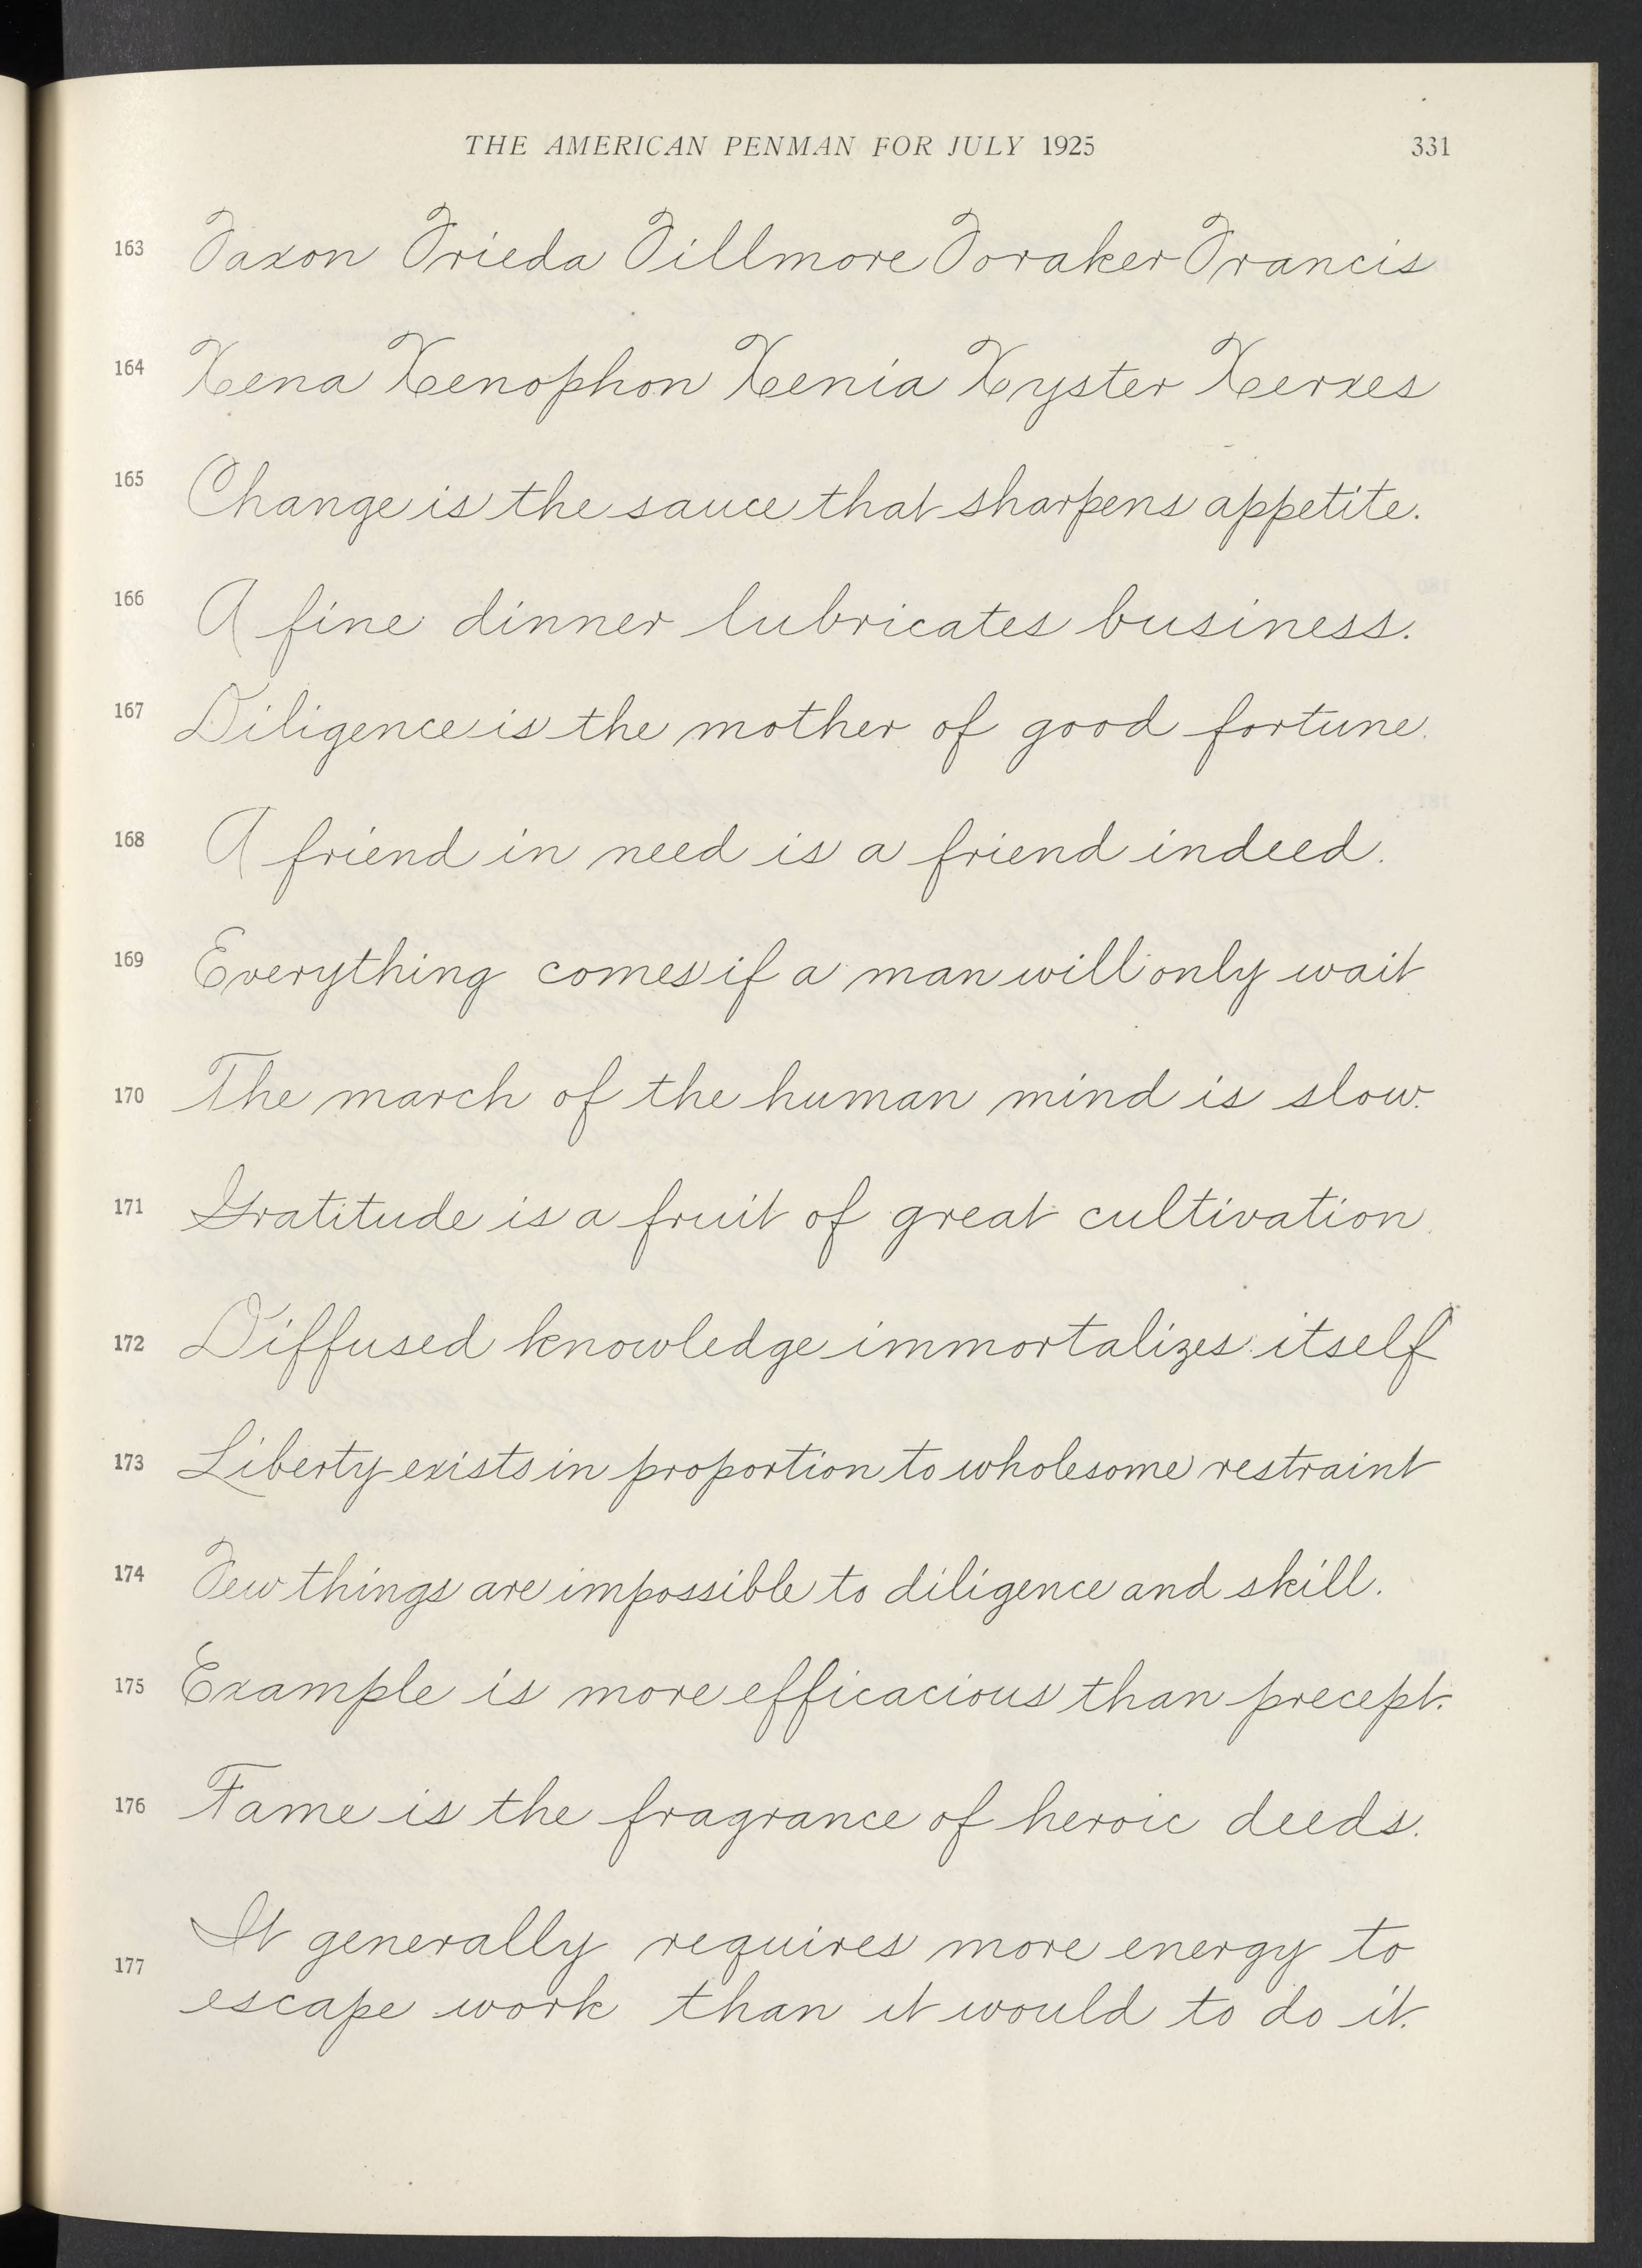 THE AMERICAN PENMAN FOR JULY 1925 331
163 Faxon Frieda Fillmore Foraker Francis
164 Xena Xenophon Xenia Xyster Xerxes
165 Change is the sauce that sharpens appetite.
166 A fine dinner lubricates business.
167 Diligence is the mother of good fortune.
168 A friend in need is a friend indeed.
169 Everything comes if a man will only wait
170 The march of the human mind is slow.
171 Gratitude is a fruit of great cultivation.
172 Diffused knowledge immortalizes itself
173 Liberty exists in proportion to wholesome restraint
174 Few things are impossible to diligence and skill.
175 Example is more efficacious than precept.
176 Fame is the fragrance of heroic deeds.
177 It generally requires more energy to
escape work than it would to do it.